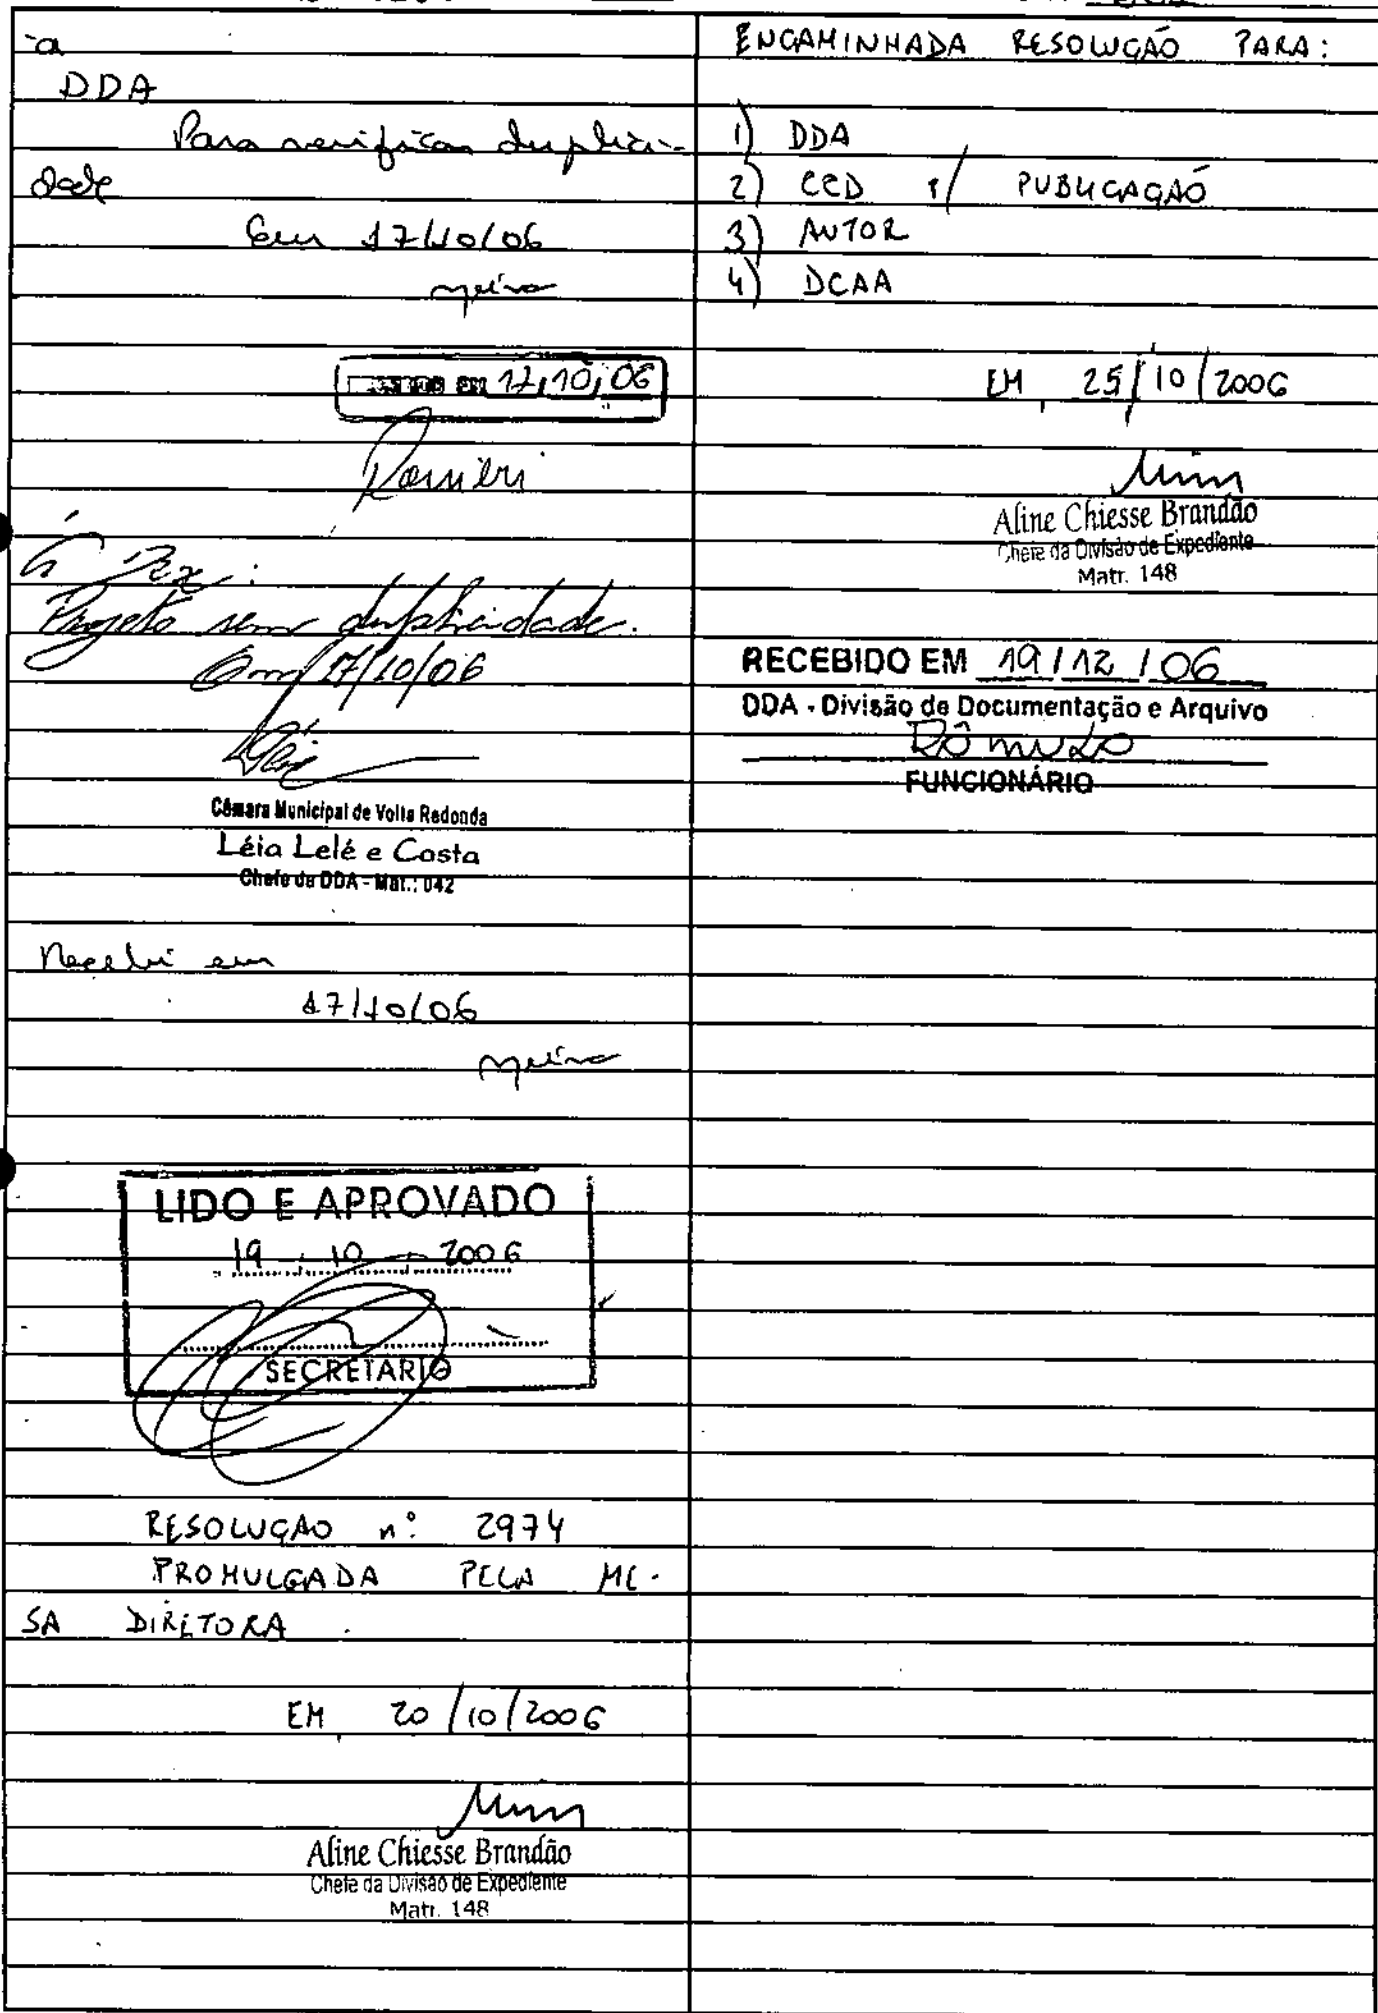 à
DDA
Para verificar duplici-
dade
Em 17/10/06
EM 17/10/06
Ranieri
À
Projeto sem duplicidade.
Em 17/10/06
Câmara Municipal de Volta Redonda
Léia Lelé e Costa
Chefe da DDA - Mat.: 042
Recebi em
17/10/06
LIDO E APROVADO
19 10 2006
SECRETARIO
RESOLUÇÃO nº 2974
PROMULGADA PELA ME-
SA DIRETORA.
EM, 20/10/2006
Aline Chiesse Brandão
Chefe da Divisão de Expediente
Matr. 148
ENCAMINHADA RESOLUÇÃO PARA:
1) DDA
2) CED P/ PUBLICAÇÃO
3) AUTOR
4) DCAA
EM, 25/10/2006
Aline Chiesse Brandão
Chefe da Divisão de Expediente
Matr. 148
RECEBIDO EM 19/12/06
DDA - Divisão de Documentação e Arquivo
RÔMULO
FUNCIONÁRIO